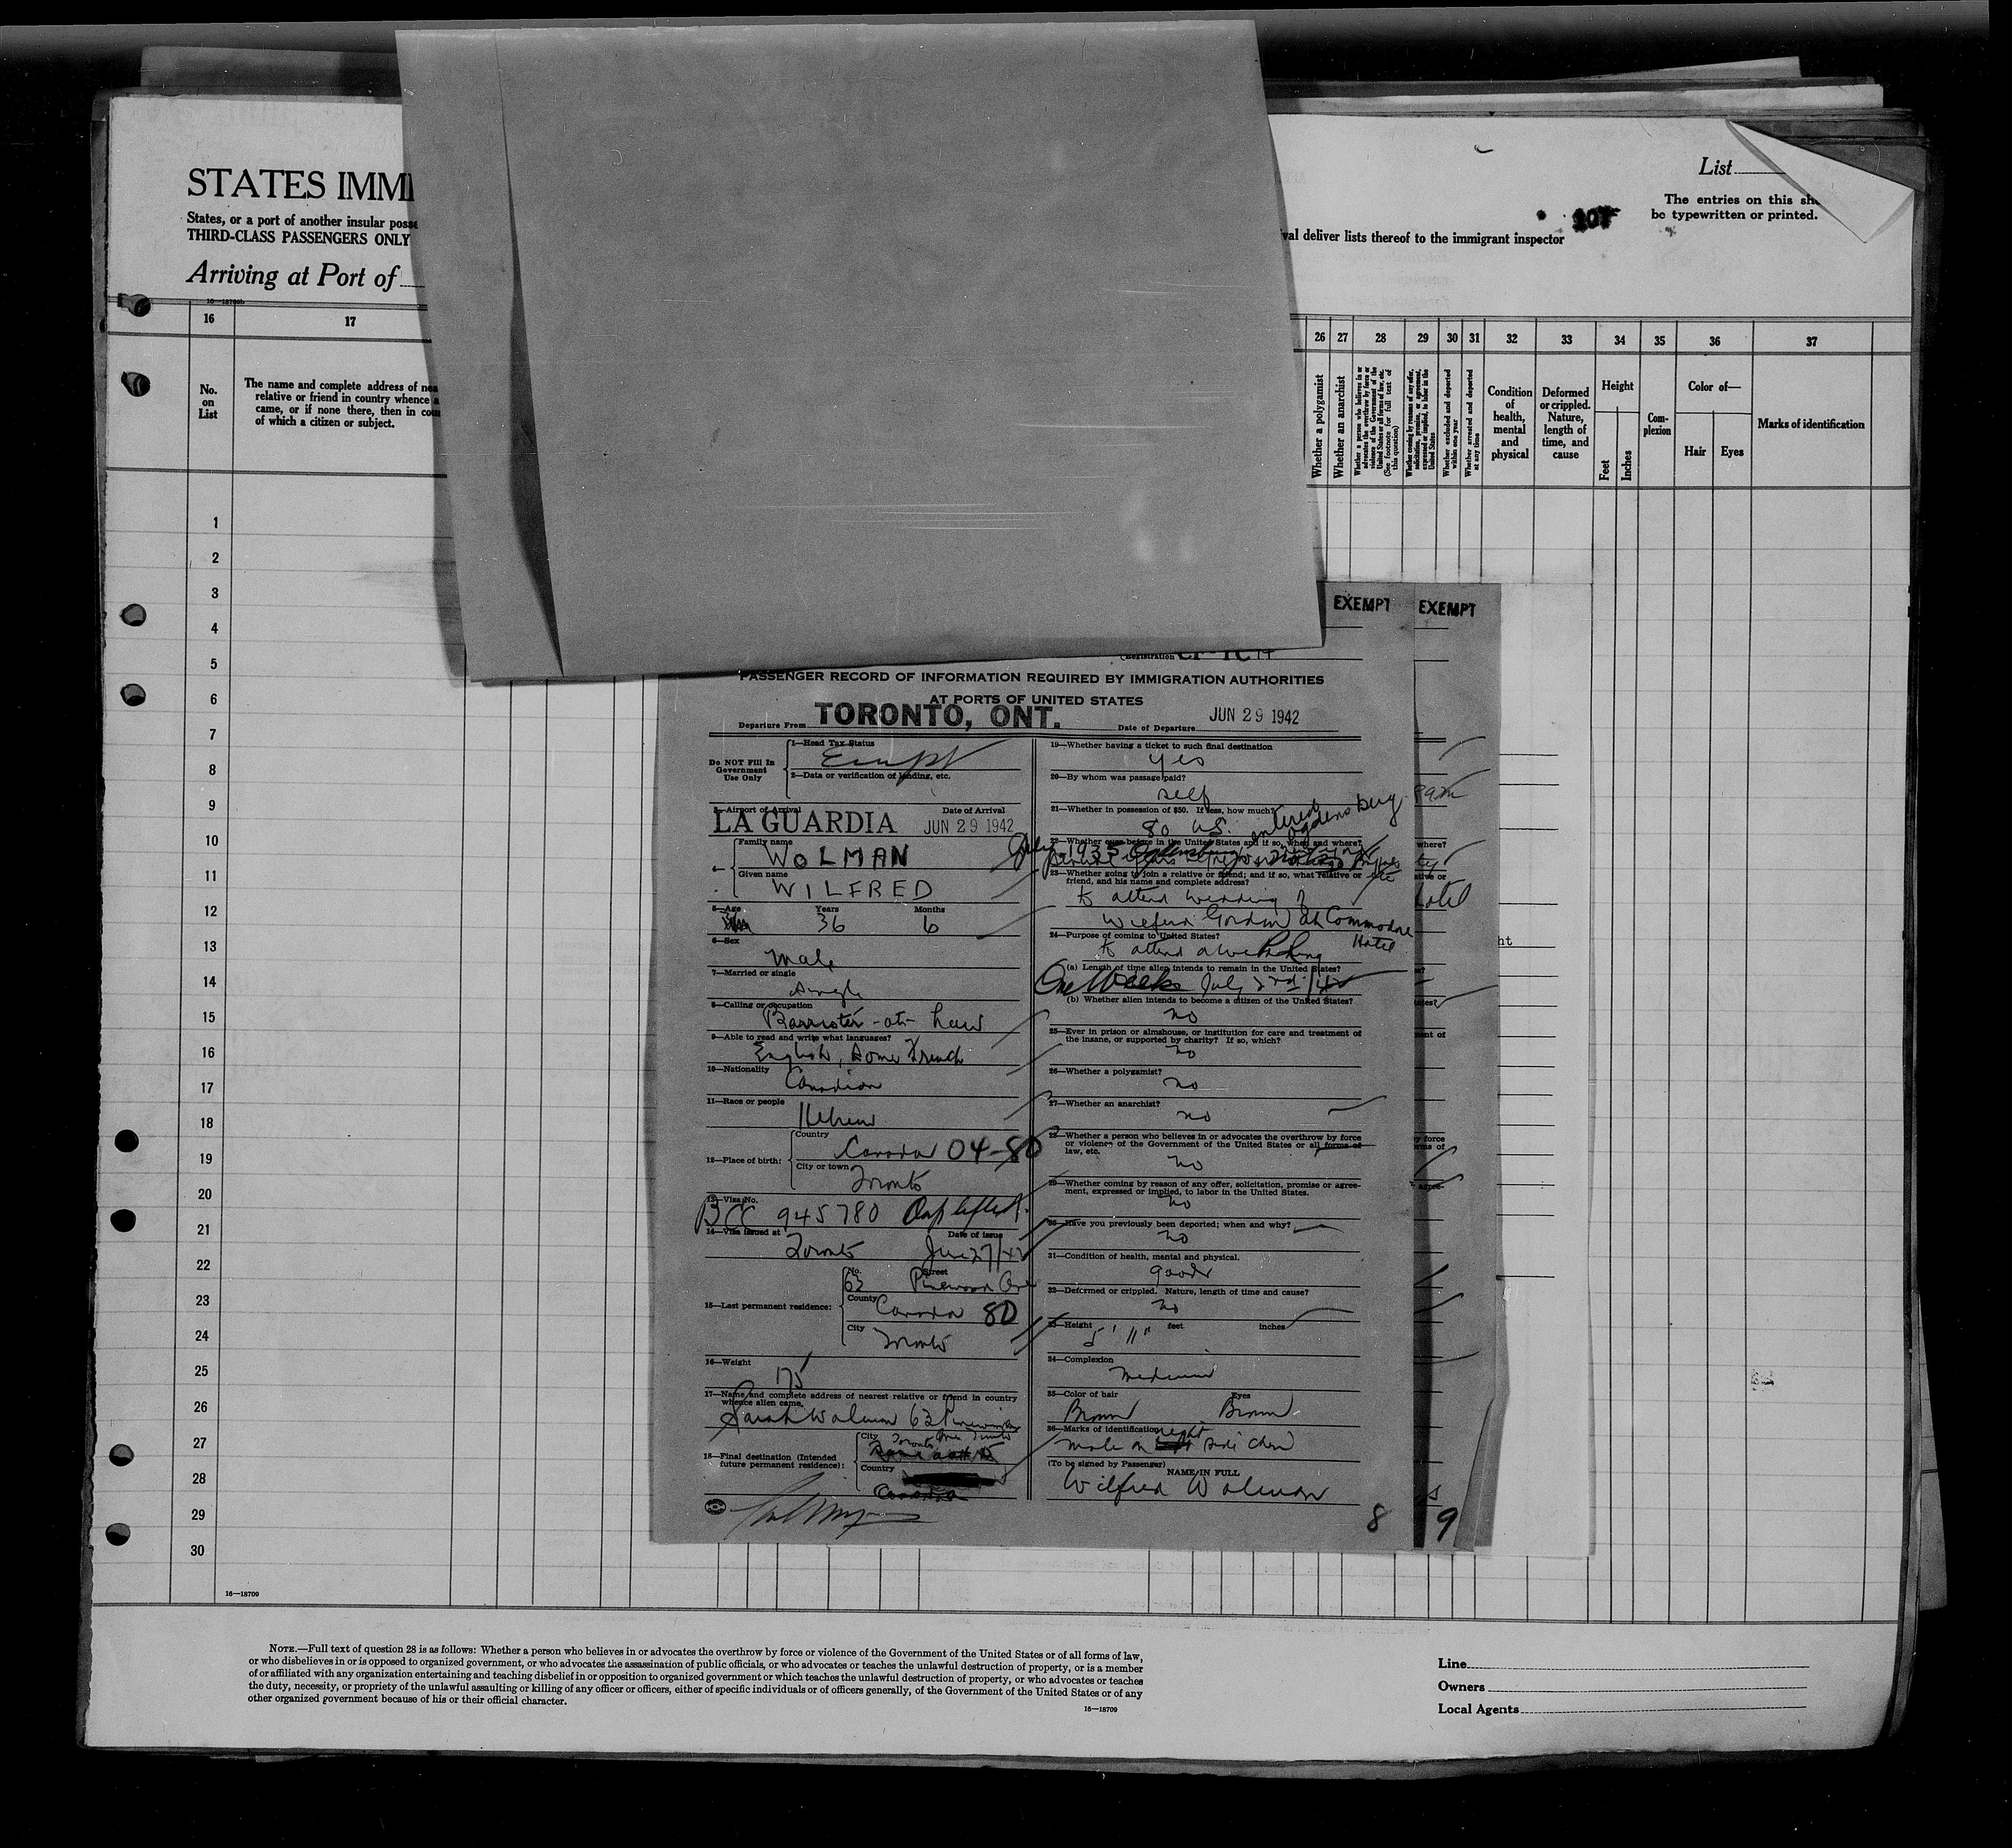 STATES IMMI
States, or a port of another insular posse
THIRD-CLASS PASSENGERS ONLY
Arriving at Port of
List
The entries on this
be typewritten or printed.
107
val deliver lists thereof to the immigrant inspector
16—18709b
16 17
26 27 28 29 30 31 32 33 34 35 36 37
No. on List
The name and complete address of
relative or friend in country whence
came, or if none there, then in
of which a citizen or subject.
Whether a polygamist
Whether an anarchist
Whether a person who believes in or advocates the overthrow by force or violence of the Government of the United States or all forms of law, etc. (See footnote for full text of this question)
Whether coming by reasons of any offer, solicitation, promise, or agreement, expressed or implied, to labor in the United States
Whether excluded and deported within one year
Whether arrested and deported at any time
Condition of health, mental and physical
Deformed or crippled. Nature, length of time, and cause
Height
Feet
Inches
Com-plexion
Color of—
Hair
Eyes
Marks of identification
1
2
3
4
5
6
7
8
9
10
11
12
13
14
15
16
17
18
19
20
21
22
23
24
25
26
27
28
29
30
16—18709
EXEMPT EXEMPT
Registration CF-TC
PASSENGER RECORD OF INFORMATION REQUIRED BY IMMIGRATION AUTHORITIES
AT PORTS OF UNITED STATES
Departure From TORONTO, ONT. Date of Departure JUN 29 1942
Do NOT Fill In Government Use Only
1—Head Tax Status
2—Data or verification of landing, etc.
3—Airport of Arrival Date of Arrival
LA GUARDIA JUN 29 1942
4— Family name
WOLMAN
Given name
WILFRED
5—Age Years Months
36 6
6—Sex
Male
7—Married or single
Single
8—Calling or occupation
Barrister-at-Law
9—Able to read and write what languages?
English, Some French
10—Nationality
Canadian
11—Race or people
Hebrew
12—Place of birth:
Country
Canada 04-80
City or town
Toronto
13—Visa No.
BCC 945780
14—Visa issued at Date of issue
Toronto June 27/42
15—Last permanent residence:
No. Street
63 Pinewood Ave
County
Canada 80
City
Toronto
16—Weight
175
17—Name and complete address of nearest relative or friend in country
whence alien came.
Sarah Wolman 63 Pinewood
18—Final destination (Intended
future permanent residence):
City
Toronto
Country
Canada
19—Whether having a ticket to such final destination
yes
20—By whom was passage paid?
self
21—Whether in possession of $50. If less, how much?
80 US.
entered Ogdensburg
22—Whether ever before in the United States and if so, when and where?
July 1935
23—Whether going to join a relative or friend; and if so, what relative or
friend, and his name and complete address?
to attend wedding of
Wilfred Gordon at Commodore
Hotel
24—Purpose of coming to United States?
to attend a wedding
(a) Length of time alien intends to remain in the United States?
One Week
(b) Whether alien intends to become a citizen of the United States?
no
25—Ever in prison or almshouse, or institution for care and treatment of
the insane, or supported by charity? If so, which?
no
26—Whether a polygamist?
no
27—Whether an anarchist?
no
28—Whether a person who believes in or advocates the overthrow by force
or violence of the Government of the United States or all forms of
law, etc.
no
29—Whether coming by reason of any offer, solicitation, promise or agree-
ment, expressed or implied, to labor in the United States.
no
30—Have you previously been deported; when and why?
no
31—Condition of health, mental and physical.
good
32—Deformed or crippled. Nature, length of time and cause?
no
33—Height feet inches
5' 11"
34—Complexion
Medium
35—Color of hair Eyes
Brown Brown
36—Marks of identification
mole on right side chin
(To be signed by Passenger)
NAME IN FULL
Wilfred Wolman
8 9
NOTE.—Full text of question 28 is as follows: Whether a person who believes in or advocates the overthrow by force or violence of the Government of the United States or of all forms of law,
or who disbelieves in or is opposed to organized government, or who advocates the assassination of public officials, or who advocates or teaches the unlawful destruction of property, or is a member
of or affiliated with any organization entertaining and teaching disbelief in or opposition to organized government or which teaches the unlawful destruction of property, or who advocates or teaches
the duty, necessity, or propriety of the unlawful assaulting or killing of any officer or officers, either of specific individuals or of officers generally, of the Government of the United States or of any
other organized government because of his or their official character.
16—18709
Line
Owners
Local Agents